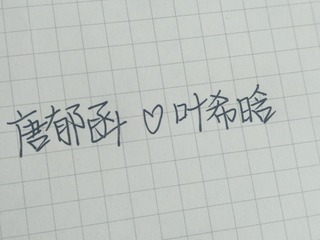 唐郁函♡叶希晗